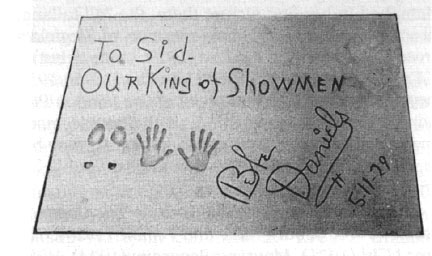 To Sid-
OUR KING of SHOWMEN
Bebe
Daniels
5-11-29